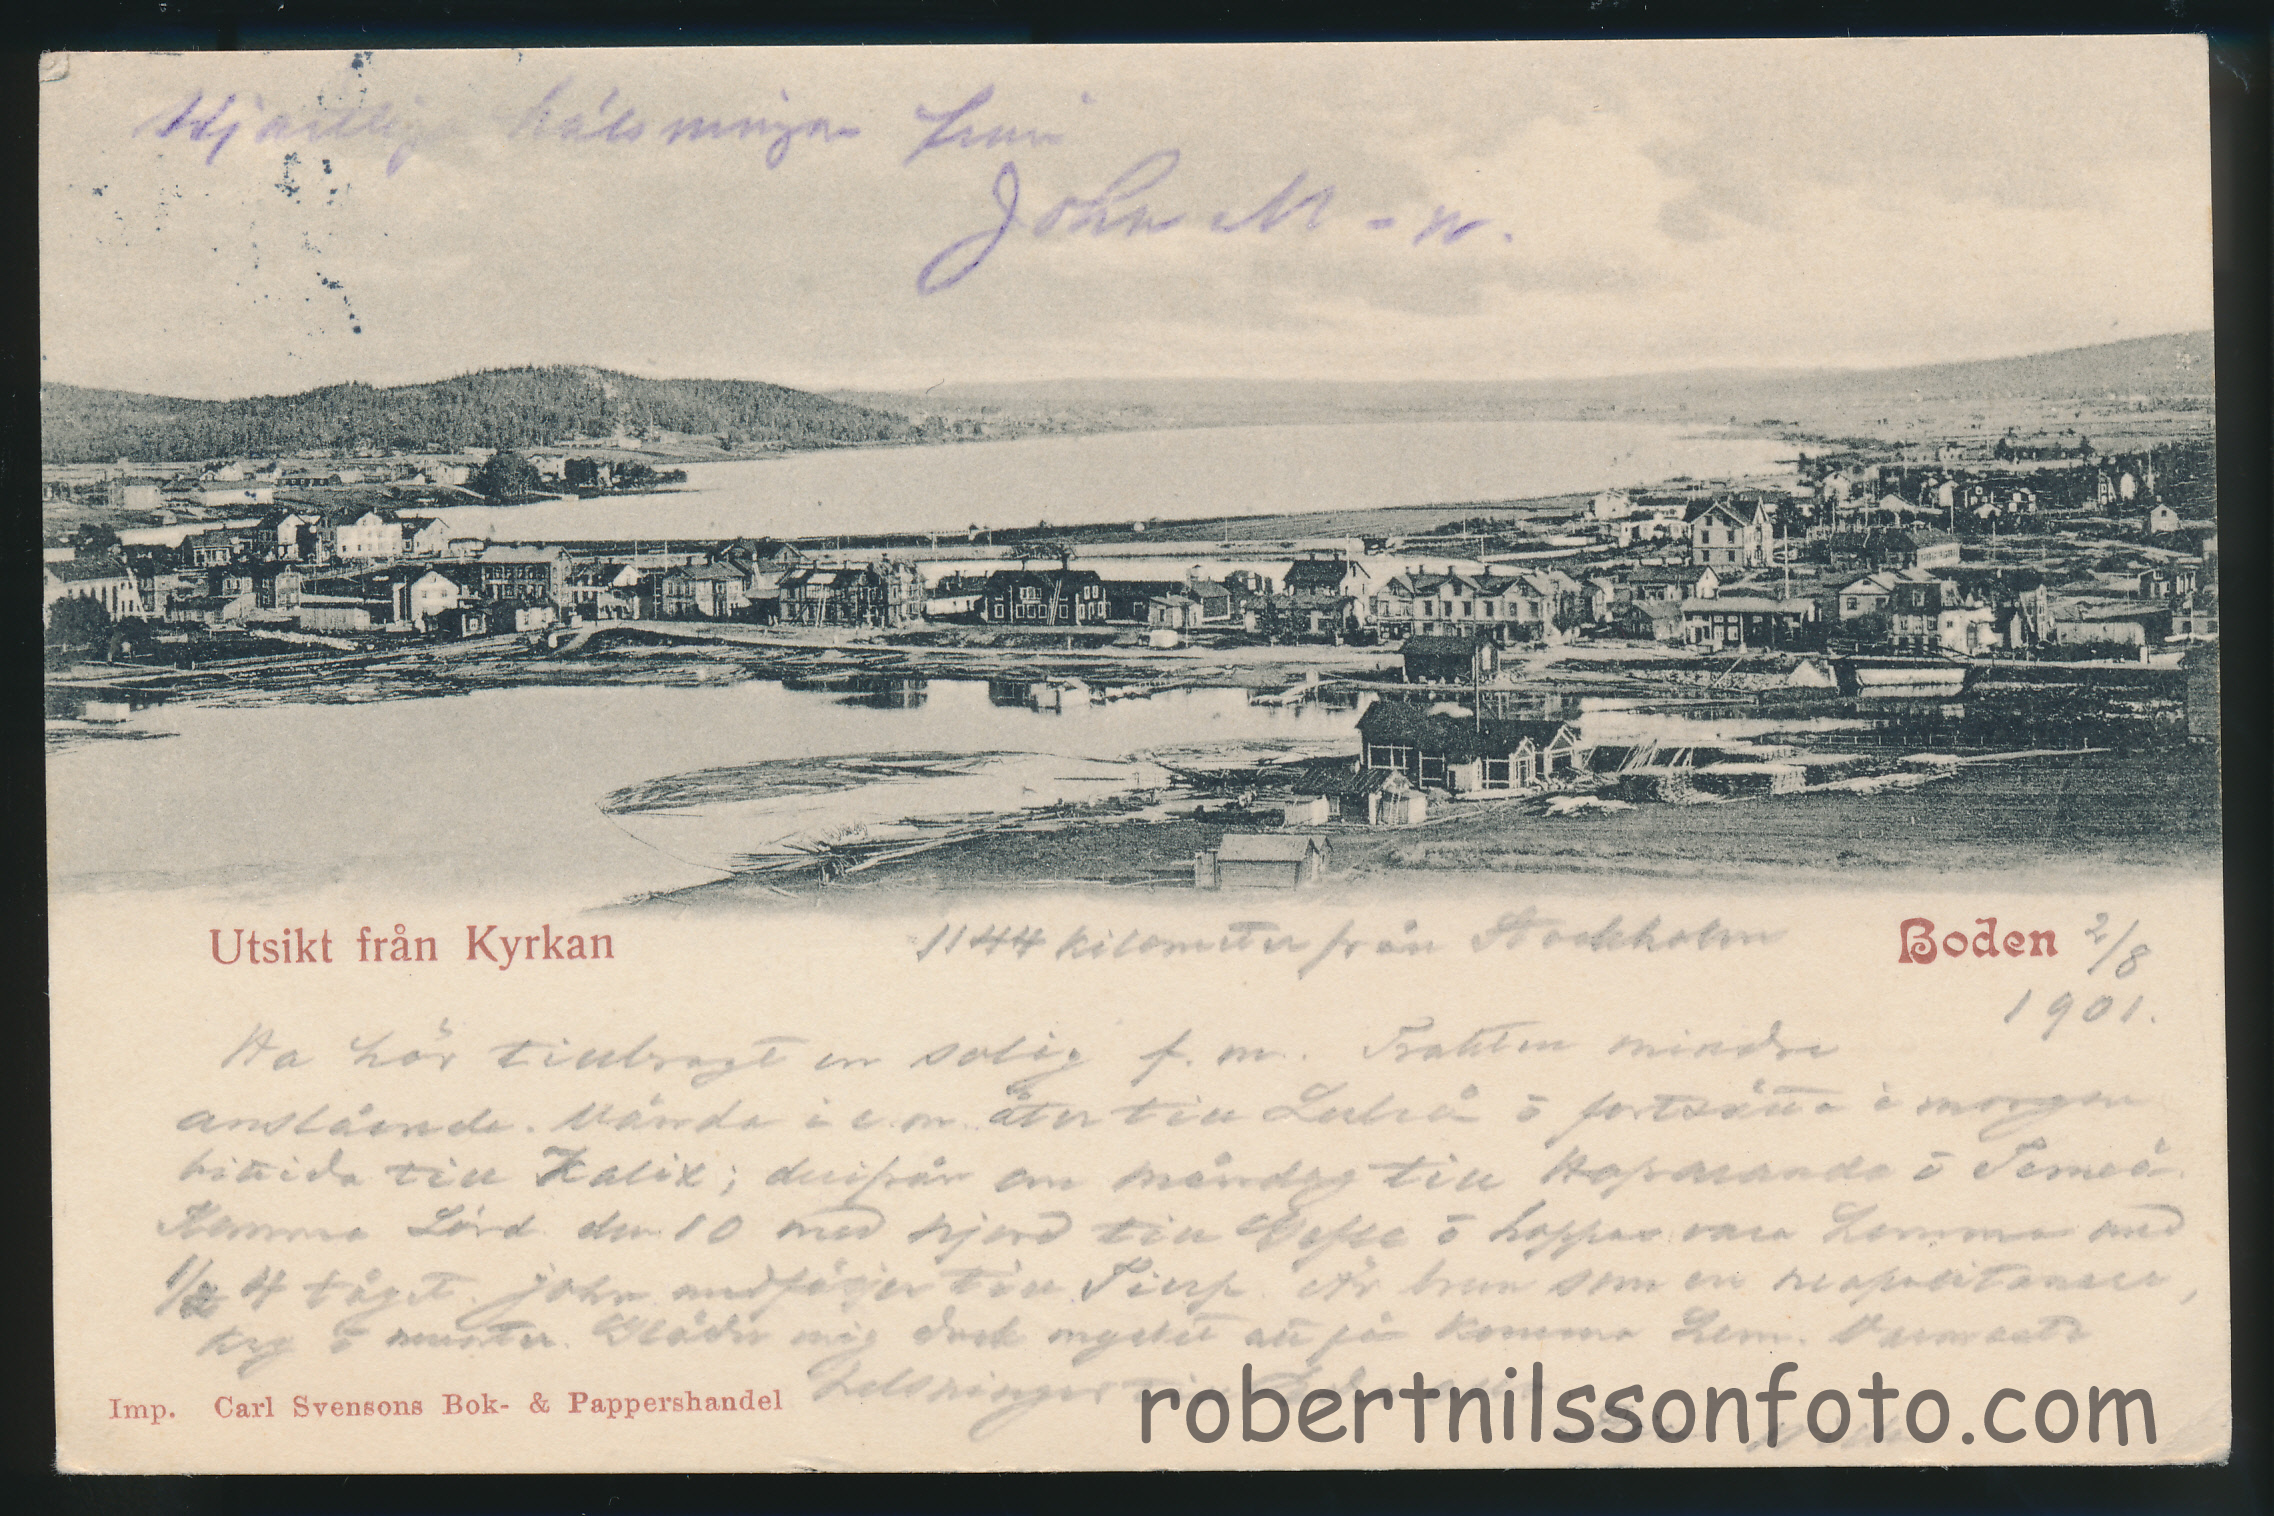 Hjärtliga hälsningar från
John M-n.
Utsikt från Kyrkan
1144 kilometer från Stockholm
Boden 2/8
1901.
Ha här tillbragt en solig f.m. Trakten mindre
anslående. Vända i e.m. åter till Luleå o fortsätta i morgon
bittida till Kalix; därifrån om måndag till Haparanda o Torneå.
Komma Lörd. den 10 med till Gefle o hoppas vara hemma med
1/2 4 tåget. John medföljer till Tierp. Är brun som en neapolitanare,
kry o munter. Gläder mig dock mycket att få komma hem. Varmaste
helsningar
Imp. Carl Svensons Bok- & Pappershandel
robertnilssonfoto.com